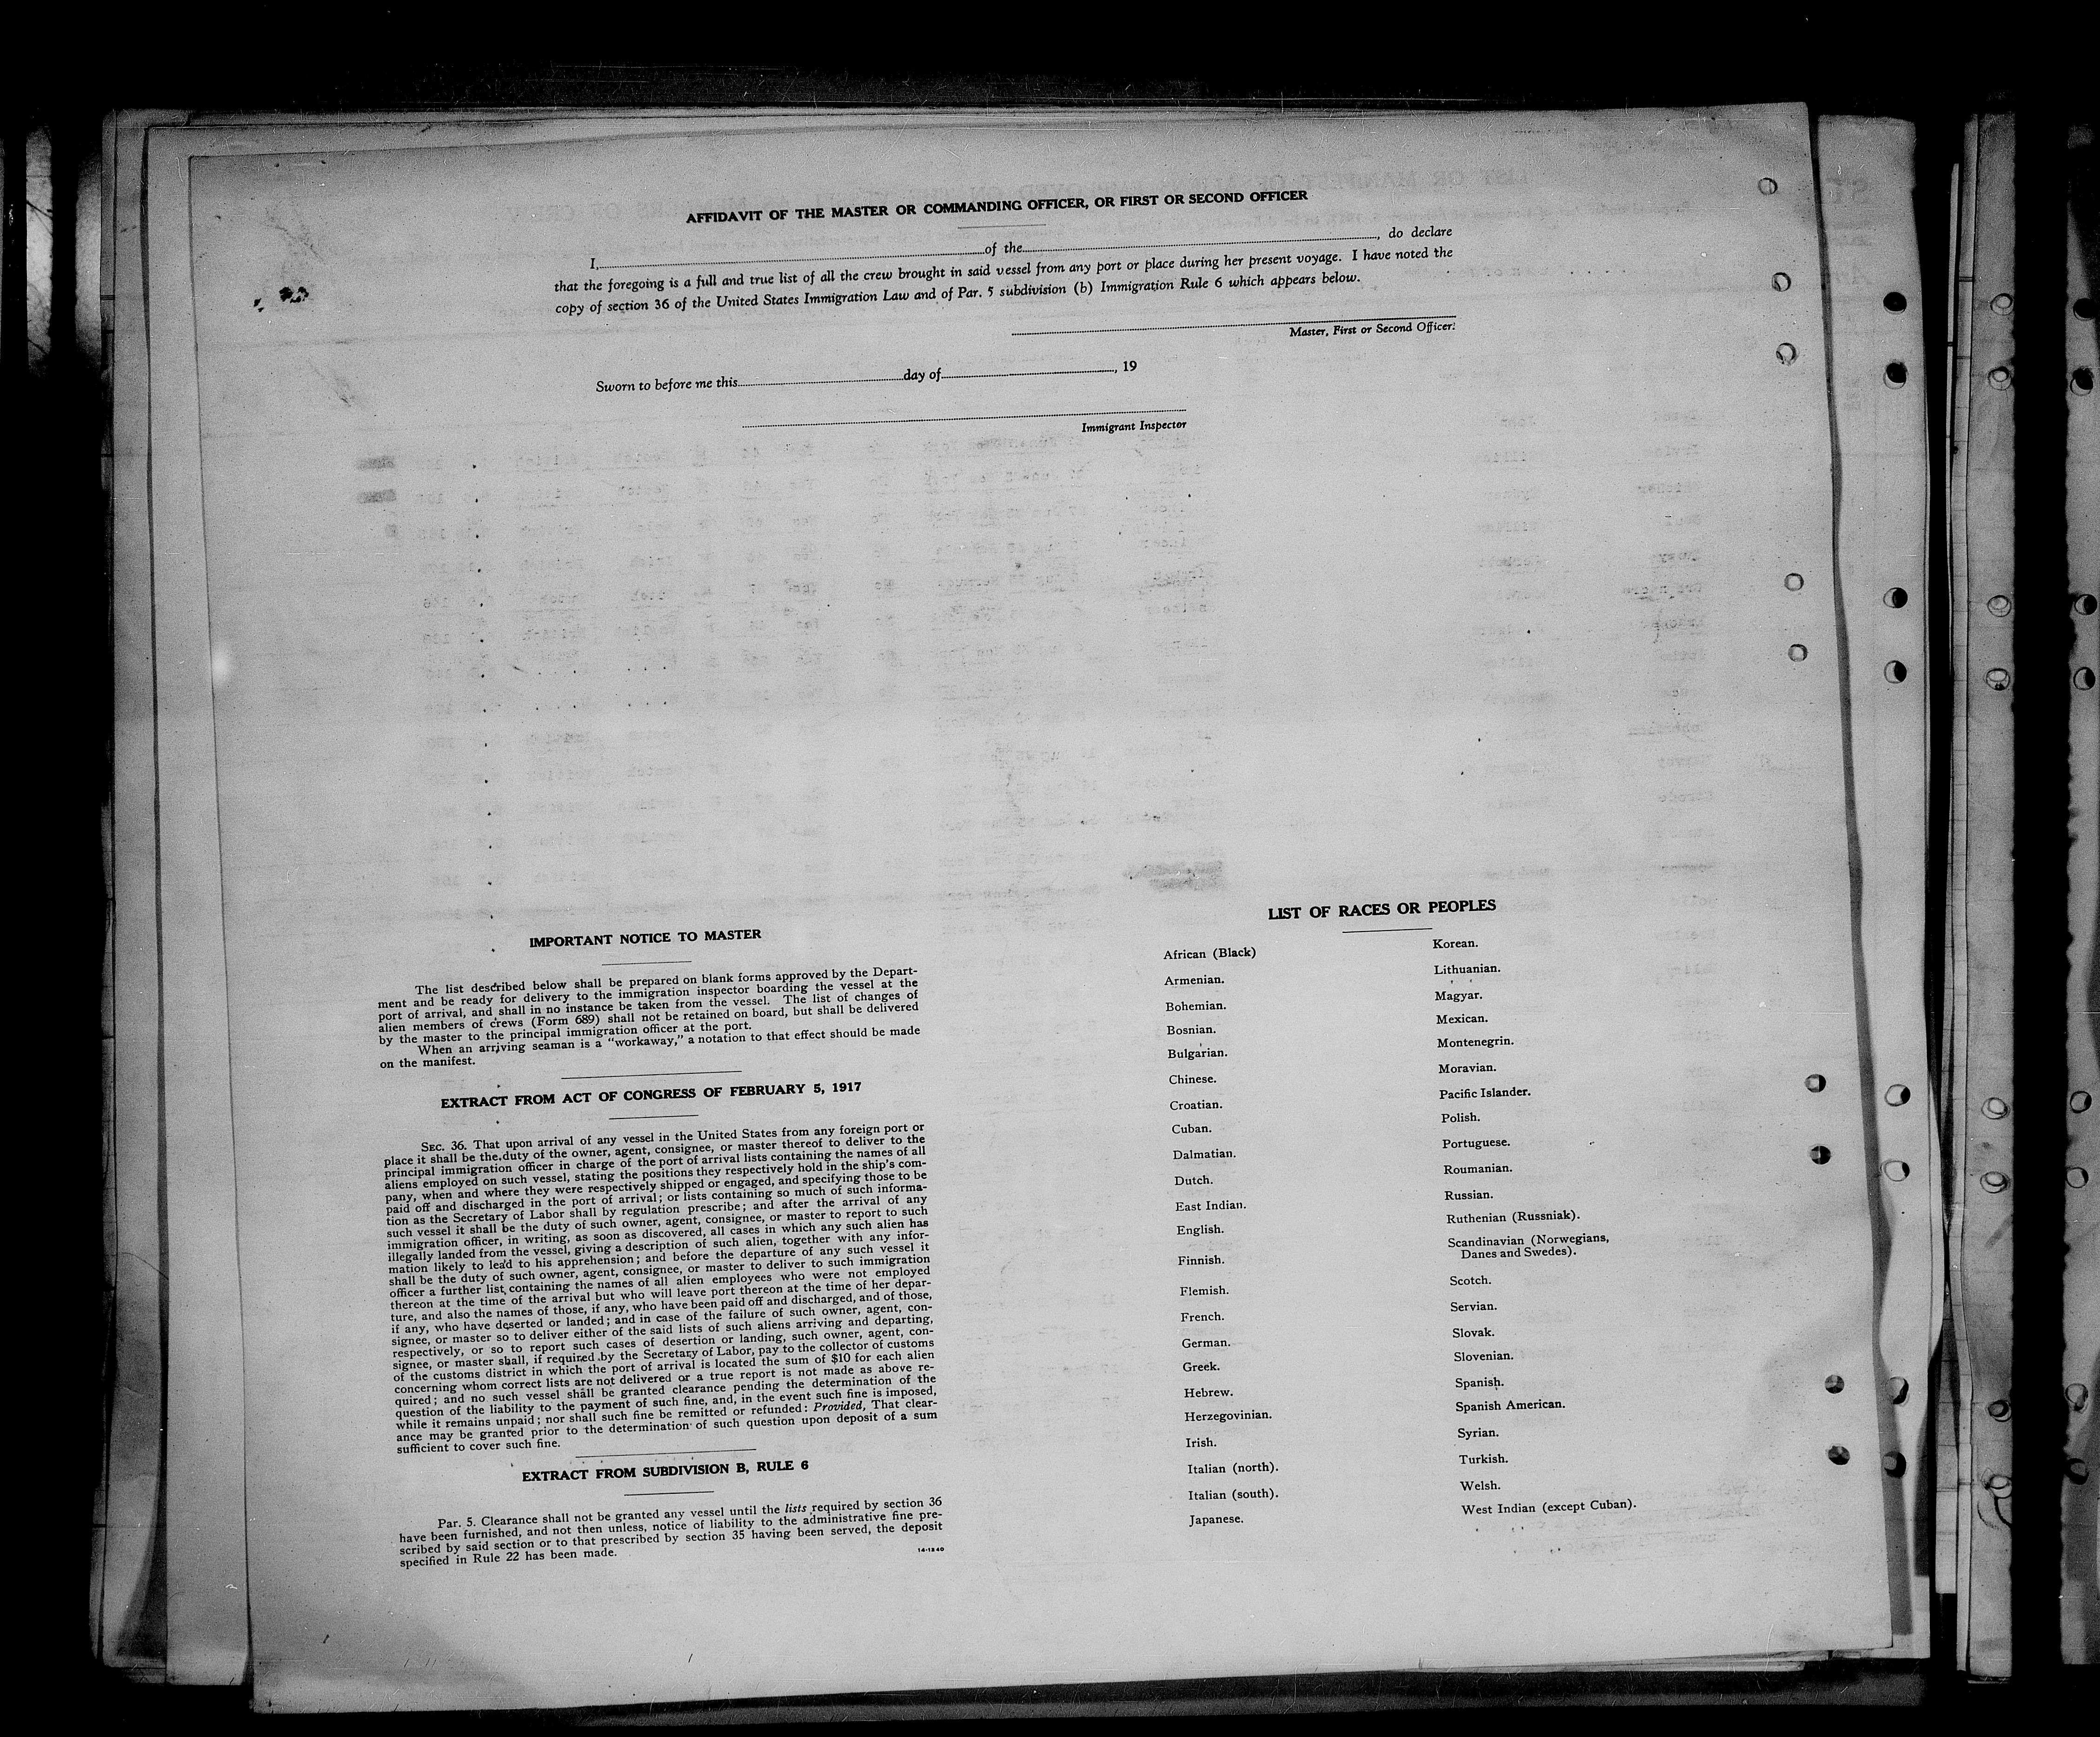 AFFIDAVIT OF THE MASTER OR COMMANDING OFFICER, OR FIRST OR SECOND OFFICER
I,..............of the.............., do declare
that the foregoing is a full and true list of all the crew brought in said vessel from any port or place during her present voyage. I have noted the
copy of section 36 of the United States Immigration Law and of Par. 5 subdivision (b) Immigration Rule 6 which appears below.
Master, First or Second Officer.
Sworn to before me this..............day of.............., 19
Immigrant Inspector
IMPORTANT NOTICE TO MASTER
The list described below shall be prepared on blank forms approved by the Depart-
ment and be ready for delivery to the immigration inspector boarding the vessel at the
port of arrival, and shall in no instance be taken from the vessel. The list of changes of
alien members of crews (Form 689) shall not be retained on board, but shall be delivered
by the master to the principal immigration officer at the port.
When an arriving seaman is a "workaway," a notation to that effect should be made
on the manifest.
EXTRACT FROM ACT OF CONGRESS OF FEBRUARY 5, 1917
SEC. 36. That upon arrival of any vessel in the United States from any foreign port or
place it shall be the duty of the owner, agent, consignee, or master thereof to deliver to the
principal immigration officer in charge of the port of arrival lists containing the names of all
aliens employed on such vessel, stating the positions they respectively hold in the ship's com-
pany, when and where they were respectively shipped or engaged, and specifying those to be
paid off and discharged in the port of arrival; or lists containing so much of such informa-
tion as the Secretary of Labor shall by regulation prescribe; and after the arrival of any
such vessel it shall be the duty of such owner, agent, consignee, or master to report to such
immigration officer, in writing, as soon as discovered, all cases in which any such alien has
illegally landed from the vessel, giving a description of such alien, together with any infor-
mation likely to lead to his apprehension; and before the departure of any such vessel it
shall be the duty of such owner, agent, consignee, or master to deliver to such immigration
officer a further list containing the names of all alien employees who were not employed
thereon at the time of the arrival but who will leave port thereon at the time of her depar-
ture, and also the names of those, if any, who have been paid off and discharged, and of those,
if any, who have deserted or landed; and in case of the failure of such owner, agent, con-
signee, or master so to deliver either of the said lists of such aliens arriving and departing,
respectively, or so to report such cases of desertion or landing, such owner, agent, con-
signee, or master shall, if required by the Secretary of Labor, pay to the collector of customs
of the customs district in which the port of arrival is located the sum of $10 for each alien
concerning whom correct lists are not delivered or a true report is not made as above re-
quired; and no such vessel shall be granted clearance pending the determination of the
question of the liability to the payment of such fine, and, in the event such fine is imposed,
while it remains unpaid; nor shall such fine be remitted or refunded: Provided, That clear-
ance may be granted prior to the determination of such question upon deposit of a sum
sufficient to cover such fine.
EXTRACT FROM SUBDIVISION B, RULE 6
Par. 5. Clearance shall not be granted any vessel until the lists required by section 36
have been furnished, and not then unless, notice of liability to the administrative fine pre-
scribed by said section or to that prescribed by section 35 having been served, the deposit
specified in Rule 22 has been made.
14-1240
LIST OF RACES OR PEOPLES
African (Black)
Armenian.
Bohemian.
Bosnian.
Bulgarian.
Chinese.
Croatian.
Cuban.
Dalmatian.
Dutch.
East Indian.
English.
Finnish.
Flemish.
French.
German.
Greek.
Hebrew.
Herzegovinian.
Irish.
Italian (north).
Italian (south).
Japanese.
Korean.
Lithuanian.
Magyar.
Mexican.
Montenegrin.
Moravian.
Pacific Islander.
Polish.
Portuguese.
Roumanian.
Russian.
Ruthenian (Russniak).
Scandinavian (Norwegians,
Danes and Swedes).
Scotch.
Servian.
Slovak.
Slovenian.
Spanish.
Spanish American.
Syrian.
Turkish.
Welsh.
West Indian (except Cuban).